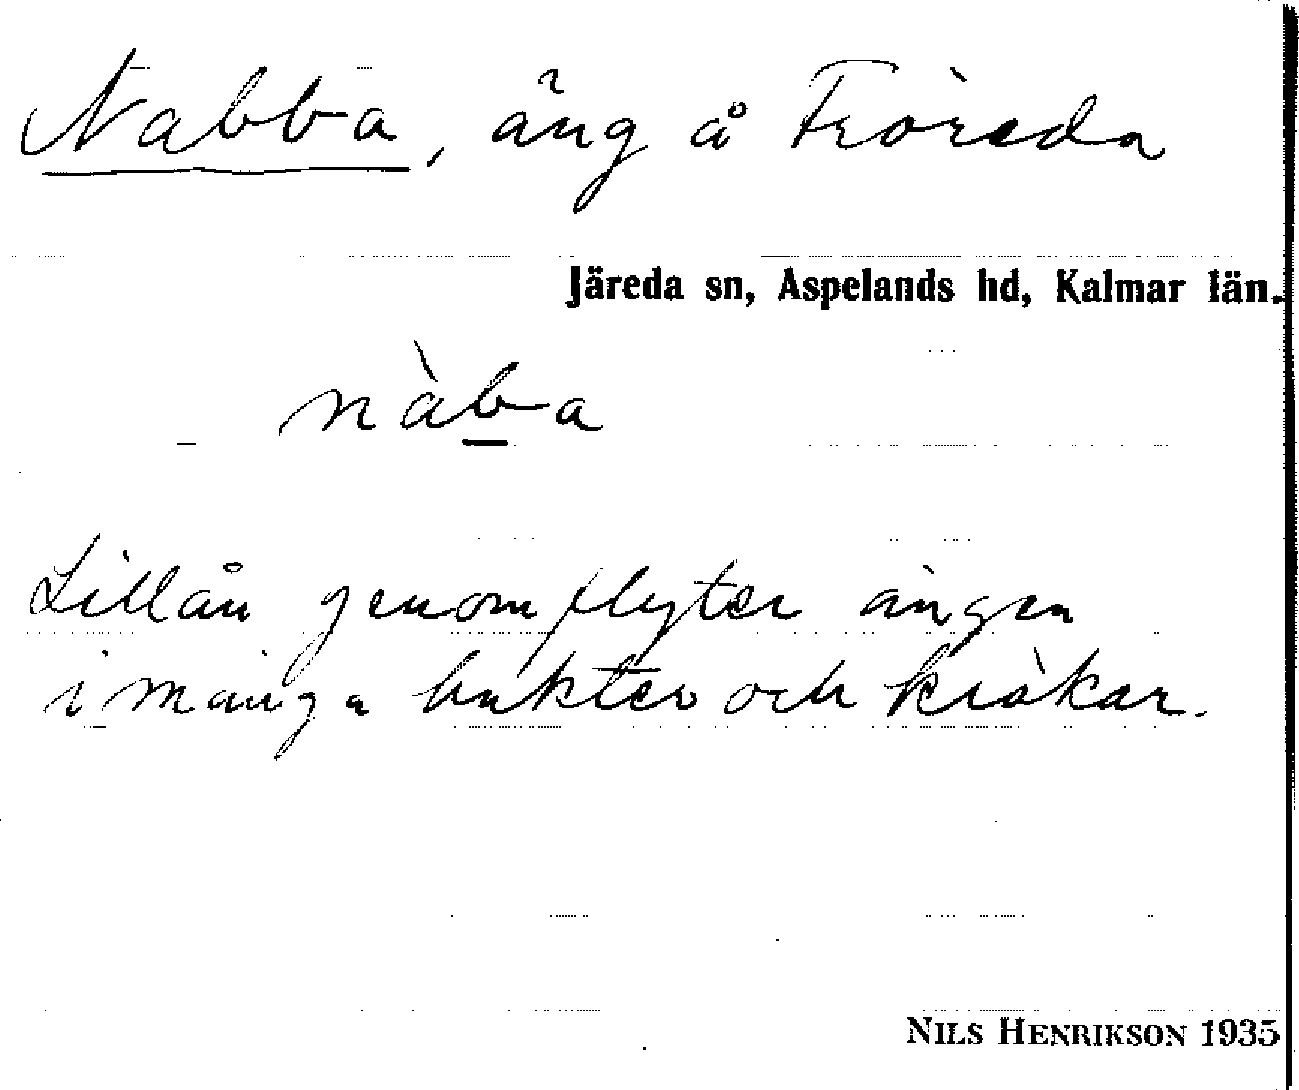 Nabba, äng å Fröreda
Järeda sn, Aspelands hd, Kalmar län.
nàb̲a
Lillån genomflyter ängen
i många bukter och krökar.
NILS HENRIKSON 1935